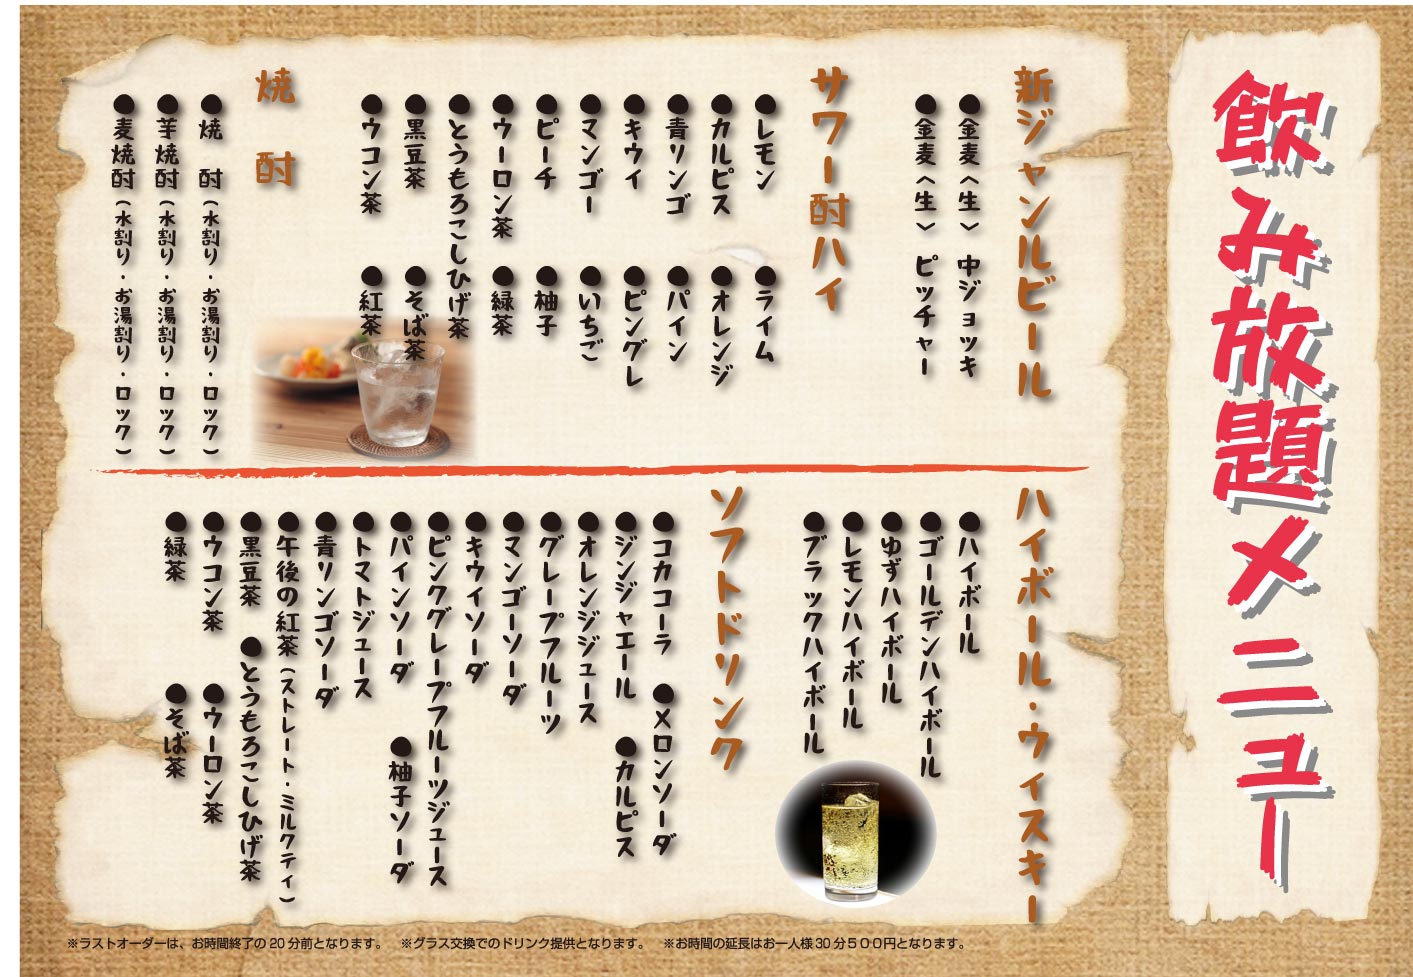 飲み放題メニュー
新ジャンルビール
●金麦〈生〉 中ジョッキ
●金麦〈生〉 ピッチャー
サワー酎ハイ
●レモン ●ライム
●カルピス ●オレンジ
●青リンゴ ●パイン
●キウイ ●ピングレ
●マンゴー ●いちご
●ピーチ ●柚子
●ウーロン茶 ●緑茶
●とうもろこしひげ茶
●黒豆茶 ●そば茶
●ウコン茶 ●紅茶
焼 酎
●焼 酎(水割り・お湯割り・ロック)
●芋焼酎(水割り・お湯割り・ロック)
●麦焼酎(水割り・お湯割り・ロック)
ハイボール・ウィスキー
●ハイボール
●ゴールデンハイボール
●ゆずハイボール
●レモンハイボール
●ブラックハイボール
ソフトドリンク
●コカコーラ ●メロンソーダ
●ジンジャエール ●カルピス
●オレンジジュース
●グレープフルーツ
●マンゴーソーダ
●キウイソーダ
●ピンクグレープフルーツジュース
●パインソーダ ●柚子ソーダ
●トマトジュース
●青リンゴソーダ
●午後の紅茶(ストレート・ミルクティ)
●黒豆茶 ●とうもろこしひげ茶
●ウコン茶 ●ウーロン茶
●緑茶 ●そば茶
※ラストオーダーは、お時間終了の20分前となります。 ※グラス交換でのドリンク提供となります。 ※お時間の延長はお一人様30分500円となります。